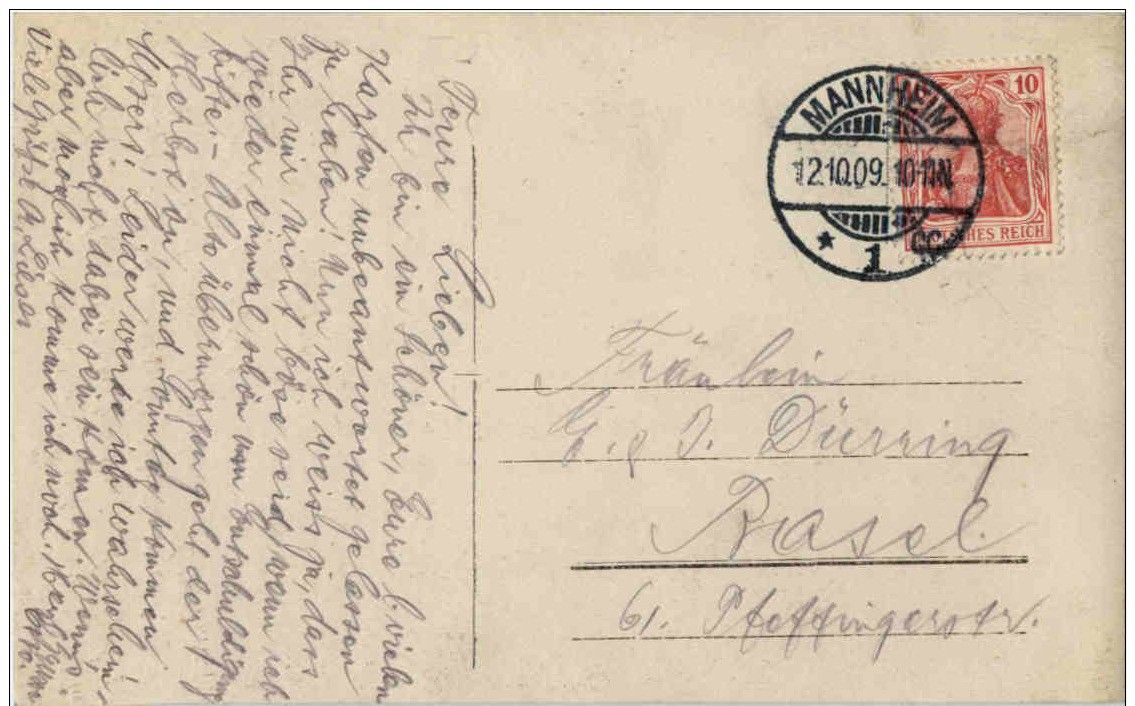 Teure Lieben!
Ich bin ein schöner, Eure l. vielen
Karten unbeantwortet gelassen
zu haben! Nun ich weiss ja, dass
Ihr mir nicht böse seid wenn ich
wieder einmal schön um Entschuldigung
bitte. - Also übermorgen geht der
Herbst an, und Sonntag kommen
Leider werde ich wahrschein-
lich nicht dabei sein können. Wenns
aber möglich komme ich noch.
Viele Grüße A. Otto.
MANNHEIM
12.10.09. 10-11N.
* 1 c
10
REICH
Fräulein
E. & J. Dürring
Basel
61. Pfeffingerstr.